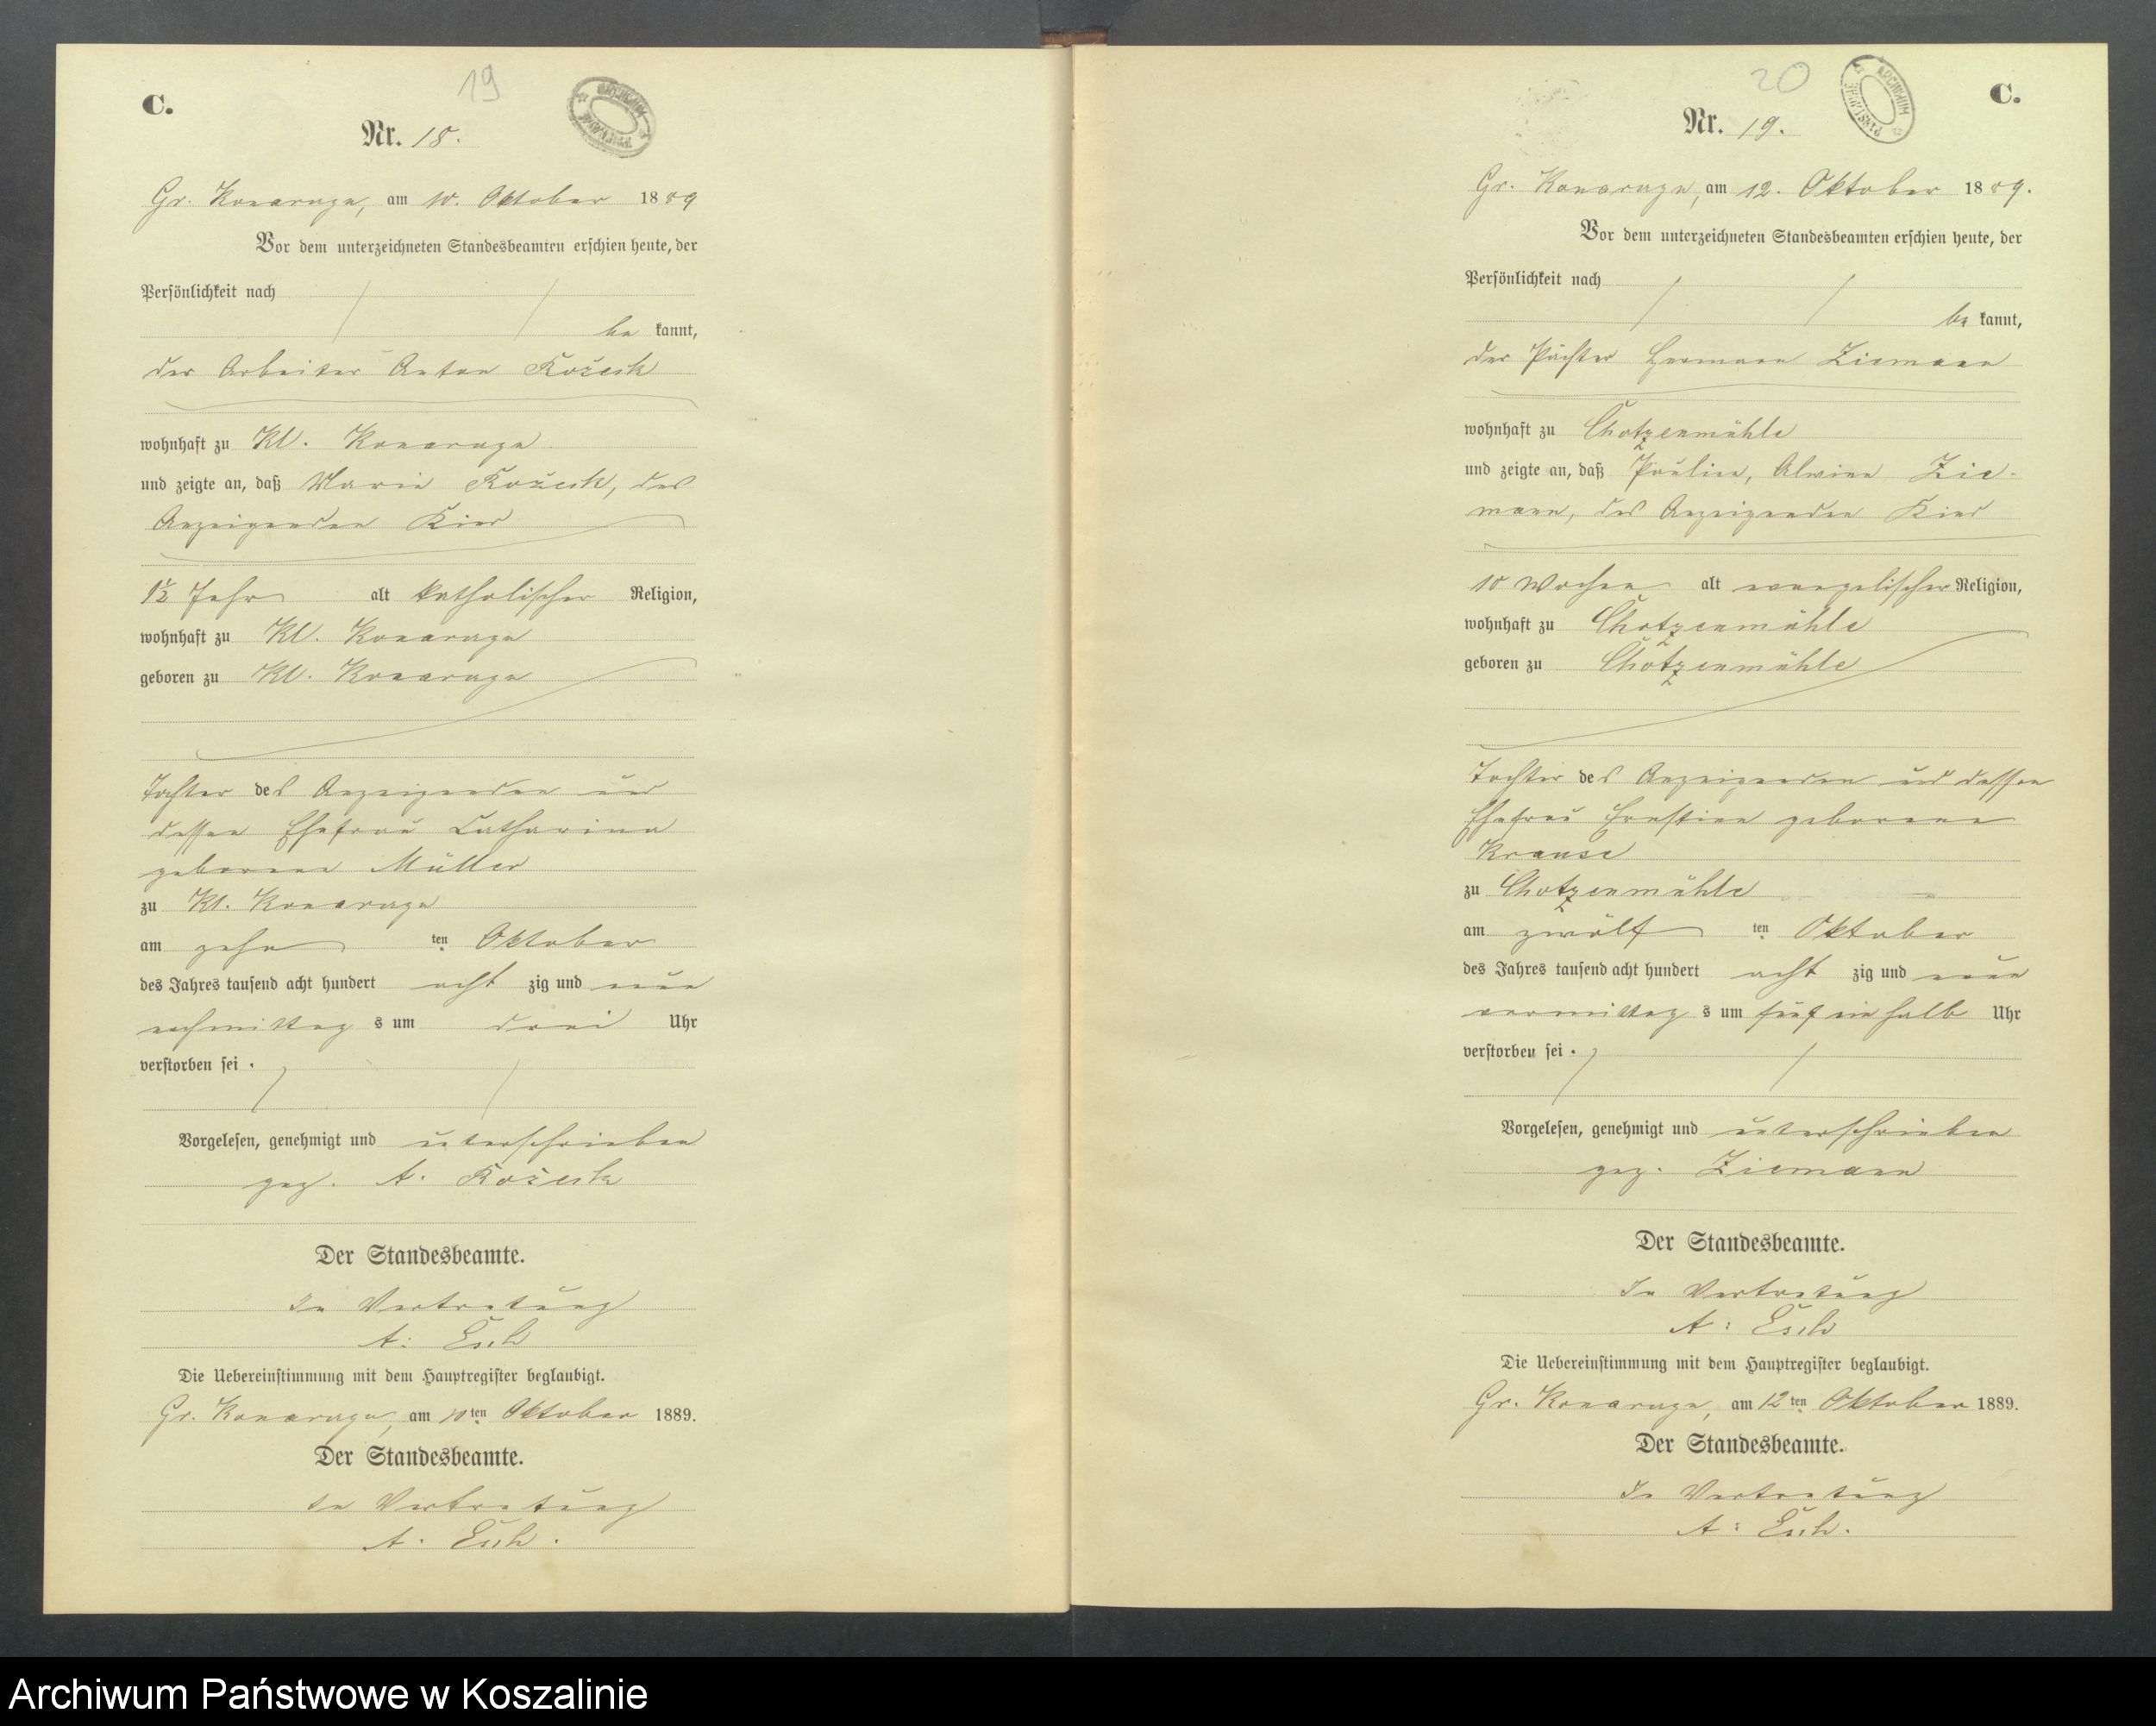 19
C.
ARCHIWUM PAŃSTWOWE
Nr. 18.
Gr. Konarzyn, am 10. Oktober 1889
Vor dem unterzeichneten Standesbeamten erschien heute, der
Persönlichkeit nach
be kannt,
der Arbeiter Anton
wohnhaft zu Kl. Konarzyn
und zeigte an, daß Marie des
Anzeigenden Kind
1½ Jahr alt katholischer Religion,
wohnhaft zu Kl. Konarzyn
geboren zu Kl. Konarzyn
Tochter des Anzeigenden und
dessen Ehefrau Catharina
geborene Müller
zu Kl. Konarzyn
am zehn ten Oktober
des Jahres tausend acht hundert acht zig und neun
nachmittag s um drei Uhr
verstorben sei.
Vorgelesen, genehmigt und unterschrieben
gez. A.
Der Standesbeamte.
In Vertretung
A. Esch
Die Uebereinstimmung mit dem Hauptregister beglaubigt.
Gr. Konarzyn, am 10ten Oktober 1889.
Der Standesbeamte.
In Vertretung
A. Esch.
20
C.
ARCHIWUM PAŃSTWOWE
Nr. 19.
Gr. Konarzyn, am 12. Oktober 1889.
Vor dem unterzeichneten Standesbeamten erschien heute, der
Persönlichkeit nach
be kannt,
der Pächter Hermann Ziemann
wohnhaft zu Chotzenmühle
und zeigte an, daß Pauline, Alwine Zie-
mann, des Anzeigenden Kind
10 Wochen alt evangelischer Religion,
wohnhaft zu Chotzenmühle
geboren zu Chotzenmühle
Tochter des Anzeigenden und dessen
Ehefrau Ernstine geborene
Krause
zu Chotzenmühle
am zwölf ten Oktober
des Jahres tausend acht hundert acht zig und neun
vormittag s um fünf ein halb Uhr
verstorben sei.
Vorgelesen, genehmigt und unterschrieben
gez. Ziemann
Der Standesbeamte.
In Vertretung
A: Esch
Die Uebereinstimmung mit dem Hauptregister beglaubigt.
Gr. Konarzyn, am 12ten Oktober 1889.
Der Standesbeamte.
In Vertretung
A: Esch.
Archiwum Państwowe w Koszalinie